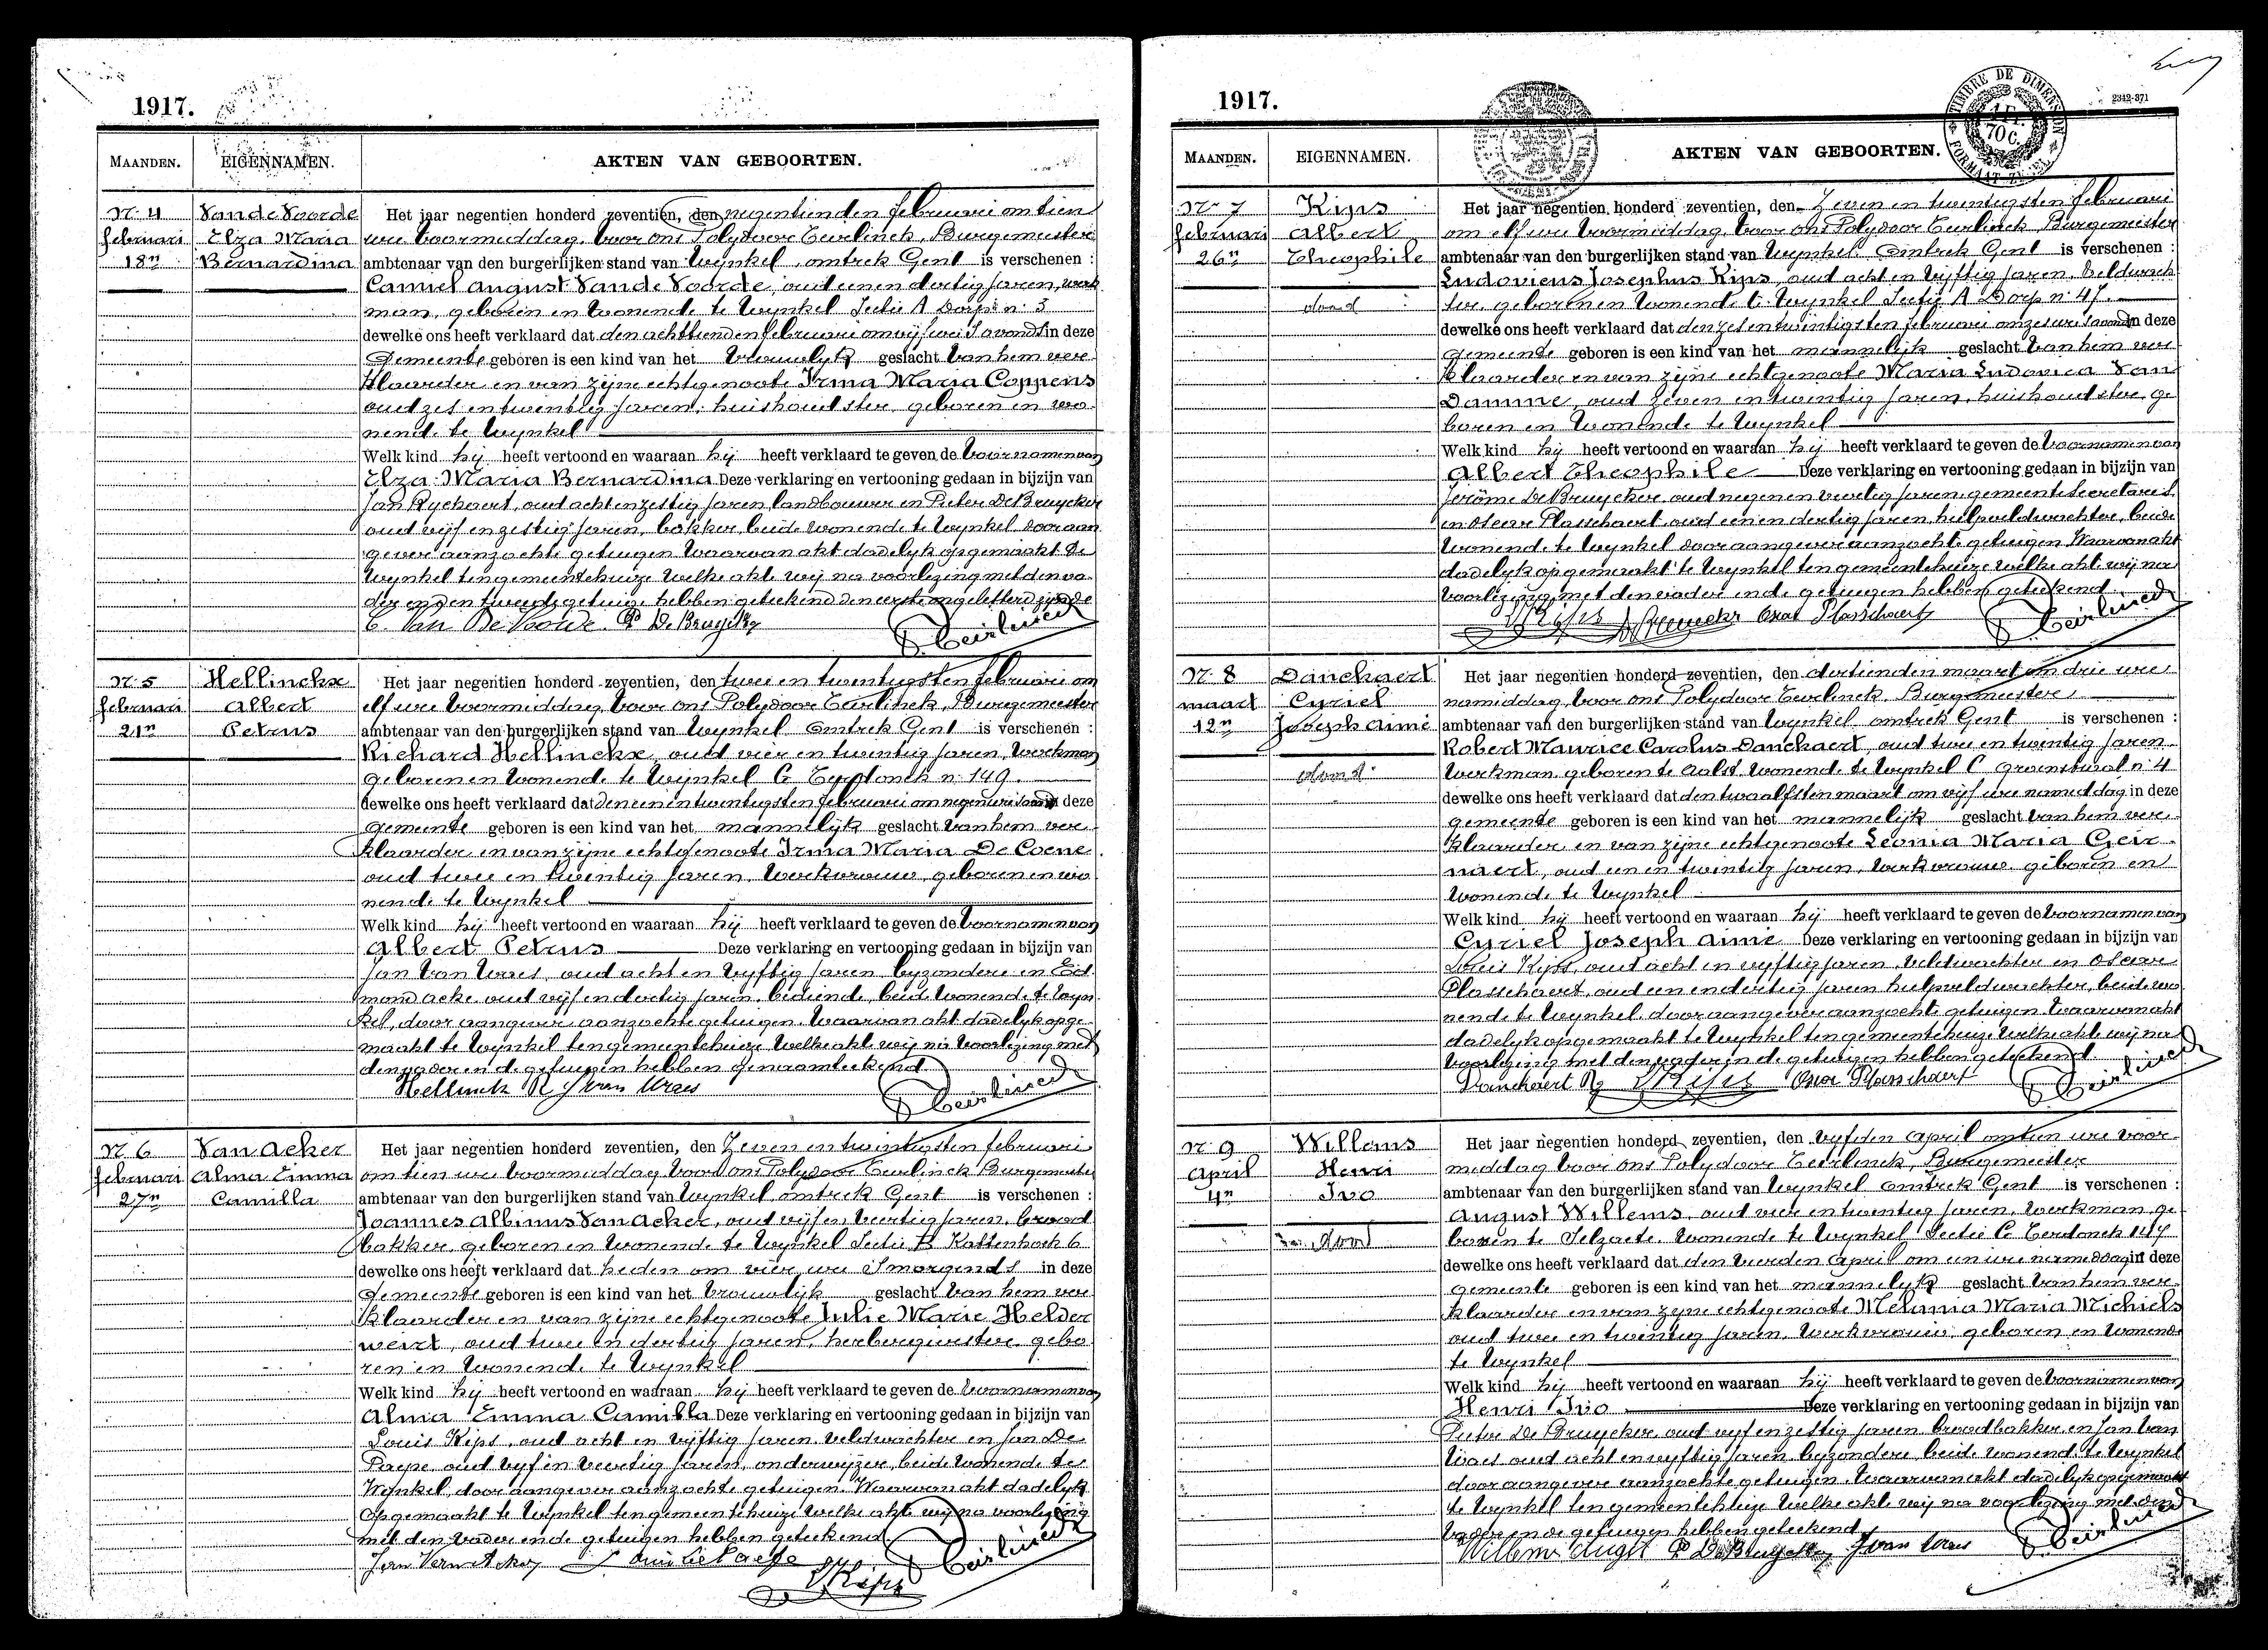 1917.
MAANDEN.
EIGENNAMEN.
AKTEN VAN GEBOORTEN.
N. 4
februari
18n
Van de Voorde
Elza Maria
Bernardina
Het jaar negentien honderd zeventien, den negentienden februari om tien
ure voormiddag, voor ons Polydoor Eerlinck, Burgemeester
ambtenaar van den burgerlijken stand van Wynkel, omtrek Gent is verschenen :
Camiel August Van de Voorde, oud eenen dertig jaren, werk
man, geboren en wonende te Wynkel Sectie A Dorp n. 3
dewelke ons heeft verklaard dat den achttienden februari om vijf ure s'avonds in deze
Gemeente geboren is een kind van het vrouwelyk geslacht van hem ver
klaarder en van zijne echtgenoote Irma Maria Coppens
oud zes en twintig jaren, huishoudster, geboren en wo
nende te Wynkel
Welk kind hij heeft vertoond en waaraan hij heeft verklaard te geven de voornamen van
Elza Maria Bernardina Deze verklaring en vertooning gedaan in bijzijn van
Jan Ryckaert, oud achtenzestig jaren landbouwer en Pieter De Bruycker
oud vijf en zestig jaren, bakker, beide wonende te Wynkel door aan
gever aanzochte getuigen Waarvan akt dadelyk opgemaakt te
Wynkel ten gemeentehuize welke akte wij na voorlezing met den va
der en den tweede getuige hebben geteekend den eerste ongeletterd zijnde
C. Van De Voorde P De Bruycker
N. 5
februari
21n
Hellinckx
Albert
Petrus
Het jaar negentien honderd zeventien, den twee en twintigsten februari om
elf ure voormiddag, voor ons Polydoor Eerlinck, Burgemeester
ambtenaar van den burgerlijken stand van Wynkel omtrek Gent is verschenen :
Richard Hellinckx, oud vier en twintig jaren, werkman
geboren en wonende te Wynkel C Terdonck n. 149.
dewelke ons heeft verklaard dat den een en twintigsten februari om negen ure s'avonds in deze
Gemeente geboren is een kind van het mannelyk geslacht van hem ver
klaarder en van zijne echtgenoote Irma Maria De Coene
oud twee en twintig jaren, werkvrouw, geboren en wo
nende te Wynkel
Welk kind hij heeft vertoond en waaraan hij heeft verklaard te geven de voornamen van
Albert Petrus Deze verklaring en vertooning gedaan in bijzijn van
Jan Van Waes, oud acht en vyftig jaren byzondere en Ed
mond Acke oud vijf en dertig jaren, bediende, beide wonende te Wyn
kel, door aangever aanzochte getuigen. Waarvan akt dadelyk opge
maakt te Wynkel ten gemeentehuize welke akt wij na voorlezing met
den vader en de getuigen hebben genaamteekend
Hellinck R J van Waes
N. 6
februari
27n
Van Acker
Alma Emma
Camilla
Het jaar negentien honderd zeventien, den Zeven en twintigsten februari
om tien ure voormiddag voor ons Polydoor Eerlinck Burgemeester
ambtenaar van den burgerlijken stand van Wynkel, omtrek Gent is verschenen :
Joannes Albinus Van Acker, oud vijf en veertig jaren, brood
bakker, geboren en wonende te Wynkel Sectie B Kattenhoek 6
dewelke ons heeft verklaard dat heden om vier ure s'morgends in deze
Gemeente geboren is een kind van het vrouwlijk geslacht van hem ver
klaarder en van zijne echtgenoote Julie Marie Helder
weirt, oud twee en dertig jaren, herbergierster gebo
ren en wonende te Wynkel
Welk kind hij heeft vertoond en waaraan hij heeft verklaard te geven de voornamen van
Alma Emma Camilla Deze verklaring en vertooning gedaan in bijzijn van
Louis Kips, oud acht en vijftig jaren veldwachter en Jan De
Paepe oud vyf en veertig jaren, onderwijzer, beide wonende te
Wynkel, door aangever aanzochte getuigen. Waarvan akt dadelyk
opgemaakt te Wynkel ten gemeentehuize welke akte wij na voorlezing
met den vader en de getuigen hebben geteekend
Kips
1917.
TIMBRE DE DIMENSION
70C.
2342-371
MAANDEN.
EIGENNAMEN.
AKTEN VAN GEBOORTEN.
N. 7
februari
26n
Kips
Albert
Theophile
dood
Het jaar negentien honderd zeventien, den Zeven en twintigsten februari
om elf ure voormiddag, voor ons Polydoor Eerlinck Burgemeester
ambtenaar van den burgerlijken stand van Wynkel Omtrek Gent is verschenen :
Ludovicus Josephus Kips, oud acht en vijftig jaren, veldwach
ter, geboren en wonende te Wynkel Sectie A Dorp n. 47.
dewelke ons heeft verklaard dat den zes en twintigsten februari om zes ure s'avonds in deze
gemeente geboren is een kind van het mannelijk geslacht van hem ver
klaarder en van zijne echtgenoote Maria Ludovica Van
Damme, oud zeven en twintig jaren, huishoudster, ge
boren en wonende te Wynkel
Welk kind hij heeft vertoond en waaraan hij heeft verklaard te geven de voornamen van
Albert Theophile Deze verklaring en vertooning gedaan in bijzijn van
Jerôme De Bruycker, oud negen en veertig jaren, gemeente secretaris
en Oscar Plasschaert, oud een en dertig jaren, hulpveldwachter, beide
wonende te Wynkel door aangever aanzochte getuigen Waarvan akt
dadelyk opgemaakt te Wynkel ten gemeentehuize welke akte wij na
voorlezing, met den vader en de getuigen hebben geteekend
Kips Oscar Plasschaert
N. 8
maart
12n
Danckaert
Cyriel
Joseph Aimé
dood
Het jaar negentien honderd zeventien, den dertienden maart om drie ure
namiddag, voor ons Polydoor Eerlinck Burgemeester
ambtenaar van den burgerlijken stand van Wynkel omtrek Gent is verschenen :
Robert Maurice Carolus Danckaert, oud twee en twintig jaren
werkman, geboren te Aalst, wonende te Wynkel C Groenstraat n. 4
dewelke ons heeft verklaard dat den twaalfsten maart om vijf ure namiddag in deze
gemeente geboren is een kind van het mannelijk geslacht van hem ver
klaarder en van zijne echtgenoote Leonia Maria Geir
naert, oud een en twintig jaren, werkvrouw geboren en
wonende te Wynkel
Welk kind hij heeft vertoond en waaraan hij heeft verklaard te geven de voornamen van
Cyriel Joseph Aimé Deze verklaring en vertooning gedaan in bijzijn van
Louis Kips, oud acht en vyftig jaren veldwachter en Oscar
Plasschaert, oud een en dertig jaren hulpveldwachter, beide wo
nende te Wynkel door aangever aanzochte getuigen Waarvan akt
dadelyk opgemaakt te Wynkel ten gemeentehuize Welke akte wij na
voorlezing met den vader en de getuigen hebben geteekend.
Danckaert R Kips Oscar Plasschaert
N. 9
April
4n
Willems
Henri
Ivo
dood
Het jaar negentien honderd zeventien, den Vyfden April om tien ure voor
middag voor ons Polydoor Eerlinck, Burgemeester
ambtenaar van den burgerlijken stand van Wynkel omtrek Gent is verschenen :
August Willems, oud vier en twintig jaren, werkman, ge
boren te Selzaete, wonende te Wynkel Sectie C Terdonck 147
dewelke ons heeft verklaard dat den vierden April om een ure namiddag in deze
gemeente geboren is een kind van het mannelyk geslacht van hem ver
klaarder en van zyne echtgenoote Melania Maria Michiels
oud twee en twintig jaren, werkvrouw, geboren en wonende
te Wynkel
Welk kind hij heeft vertoond en waaraan hij heeft verklaard te geven de voornamen van
Henri Ivo Deze verklaring en vertooning gedaan in bijzijn van
Pieter De Bruycker, oud vyf en zestig jaren broodbakker, en Jan Van
Waes oud acht en vyftig jaren, byzondere beide wonende te Wynkel
door aangever aanzochte getuigen. Waarvan akt dadelyk opgemaakt
te Wynkel ten gemeentehuize welke akte wij na voorlezing met den
vader en de getuigen hebben geteekend
Willems Augst P De Bruycker J van Waes